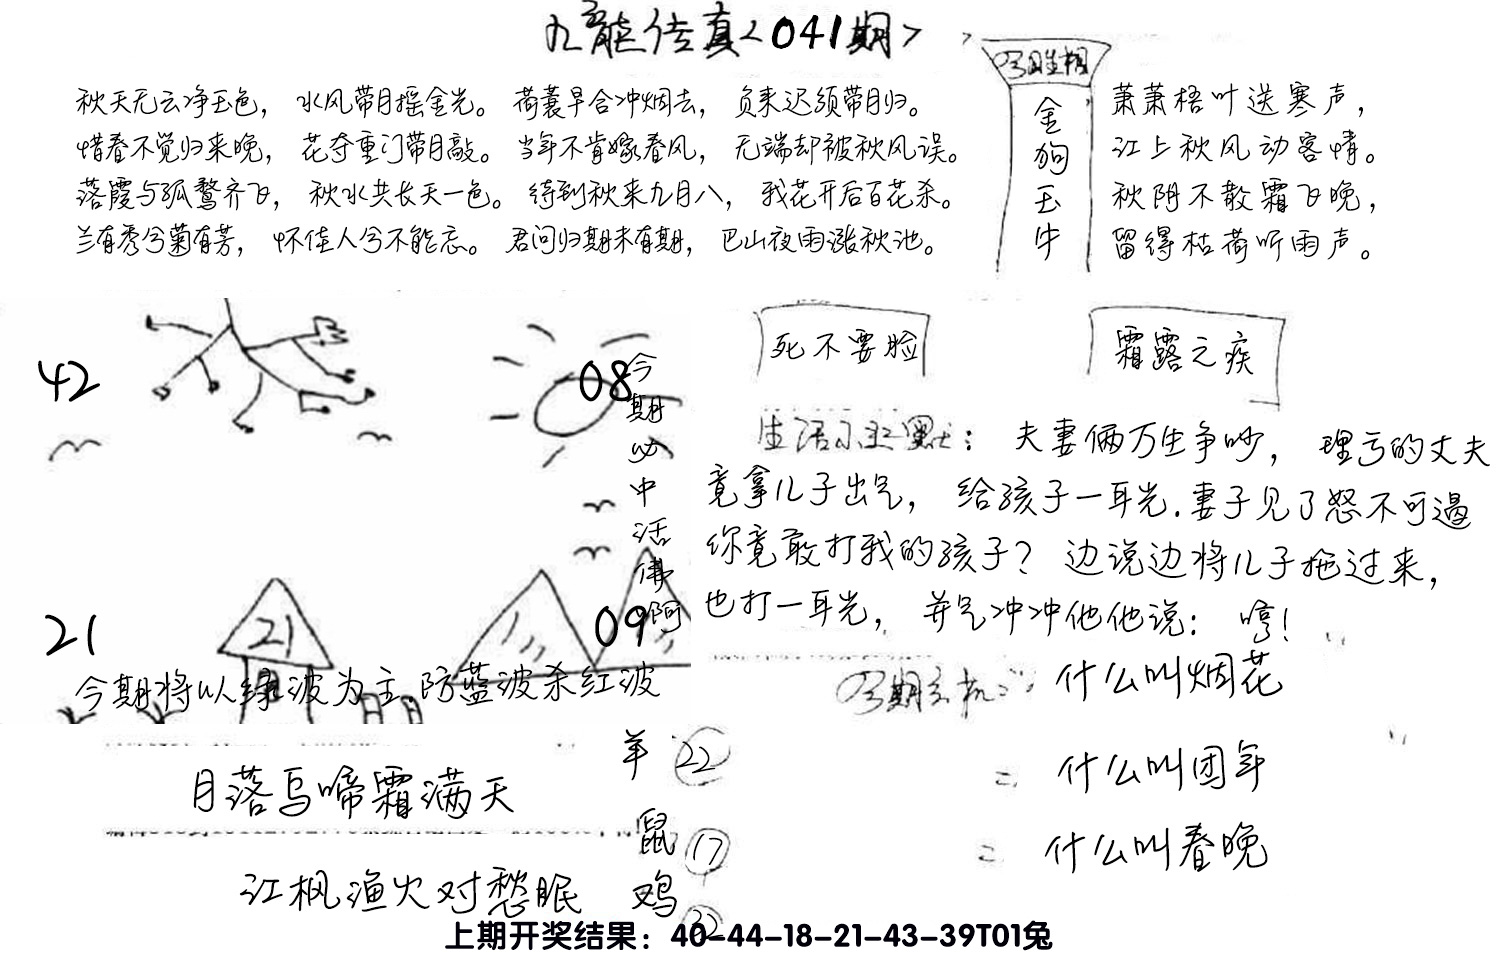 九龍传真<041期>
秋天无云净玉色，水风带月摇金光。荷蓑早合冲烟去，负耒迟须带月归。
惜春不觉归来晚，花夺重门带月敲。当年不肯嫁春风，无端却被秋风误。
落霞与孤鹜齐飞，秋水共长天一色。待到秋来九月八，我花开后百花杀。
兰有秀兮菊有芳，怀佳人兮不能忘。君问归期未有期，巴山夜雨涨秋池。
金狗玉牛
萧萧梧叶送寒声，
江上秋风动客情。
秋阴不散霜飞晚，
留得枯荷听雨声。
42
08
今期必中活佛啊
21
21
09
今期将以绿波为主防蓝波杀红波
死不要脸
霜露之疾
生活小幽默：夫妻俩万生争吵，理亏的丈夫
竟拿儿子出气，给孩子一耳光.妻子见了怒不可遏
你竟敢打我的孩子？边说边将儿子拖过来，
也打一耳光，并气冲冲他他说：哼！
什么叫烟花
什么叫团年
什么叫春晚
月落乌啼霜满天
江枫渔火对愁眠
羊 22
鼠 17
鸡 32
上期开奖结果：40-44-18-21-43-39T01兔